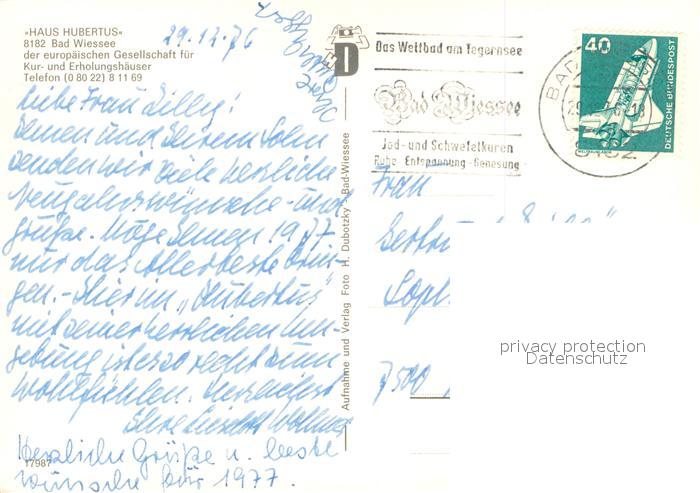 »HAUS HUBERTUS«
8182 Bad Wiessee
der europäischen Gesellschaft für
Kur- und Erholungshäuser
Telefon (0 80 22) 8 11 69
29.12.76
Liebe Frau Zilly!
Ihnen und Ihrem Sohn
senden wir viele herzliche
Neujahrswünsche - und
grüße. Möge Ihnen 1977
nur das Allerbeste brin-
gen. - Hier im „Hubertus"
mit seiner herrlichen Um-
gebung ist es so recht zum
Wohlfühlen. Herzlichst
Ihre
Herzliche Grüße u. beste
wünsche für 1977.
17987
Aufnahme und Verlag Foto H. Dubotzky - Bad-Wiessee
D
Das Weltbad am Tegernsee
Bad Wiessee
Jod- und Schwefelkuren
Ruhe · Entspannung · Genesung
BAD
8182
40
DEUTSCHE BUNDESPOST
Frau
7500
privacy protection
Datenschutz